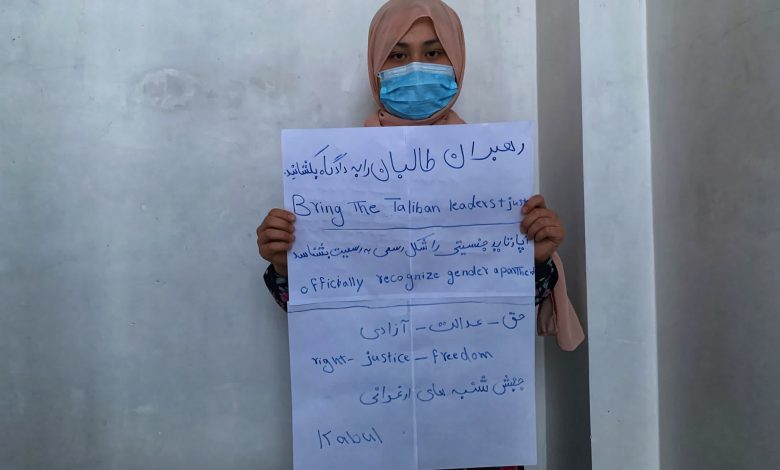 رهبران طالبان را به دادگاه بکشانید.
Bring The Taliban leaders + just
آپارتاید جنسیتی را شکل رسمی به رسمیت بشناسد
officially recognize gender aparthe
حق - عدالت - آزادی
right - justice - freedom
جنبش شنبه های ارغوانی
Kabul